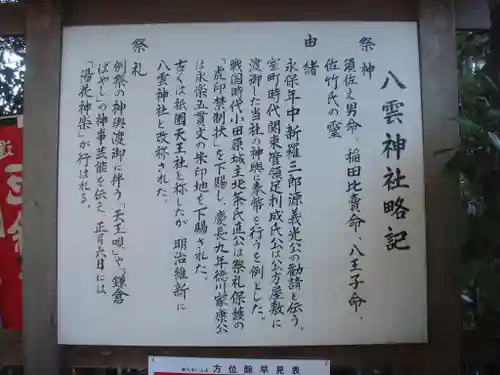 八雲神社略記
祭神
須佐之男命、稲田比売命、八王子命、
佐竹氏の霊
由緒
永保年中新羅三郎源義光公の勧請と伝う。
室町時代関東管領足利成氏公は公方屋敷に
渡御した当社の神輿に奉幣を行うを例とした。
戦国時代小田原城主北条氏直公は祭礼保護の
「虎印禁制状」を下賜し、慶長九年徳川家康公
は永楽五貫文の朱印地を下賜された。
古くは祇園天王社と称したが 明治維新に
八雲神社と改称された。
祭礼
例祭の神輿渡御に伴う「天王唄」や「鎌倉
ばやし」の神事芸能を伝え、正月六日には
「湯花神楽」が行はれる。
方位除早見表